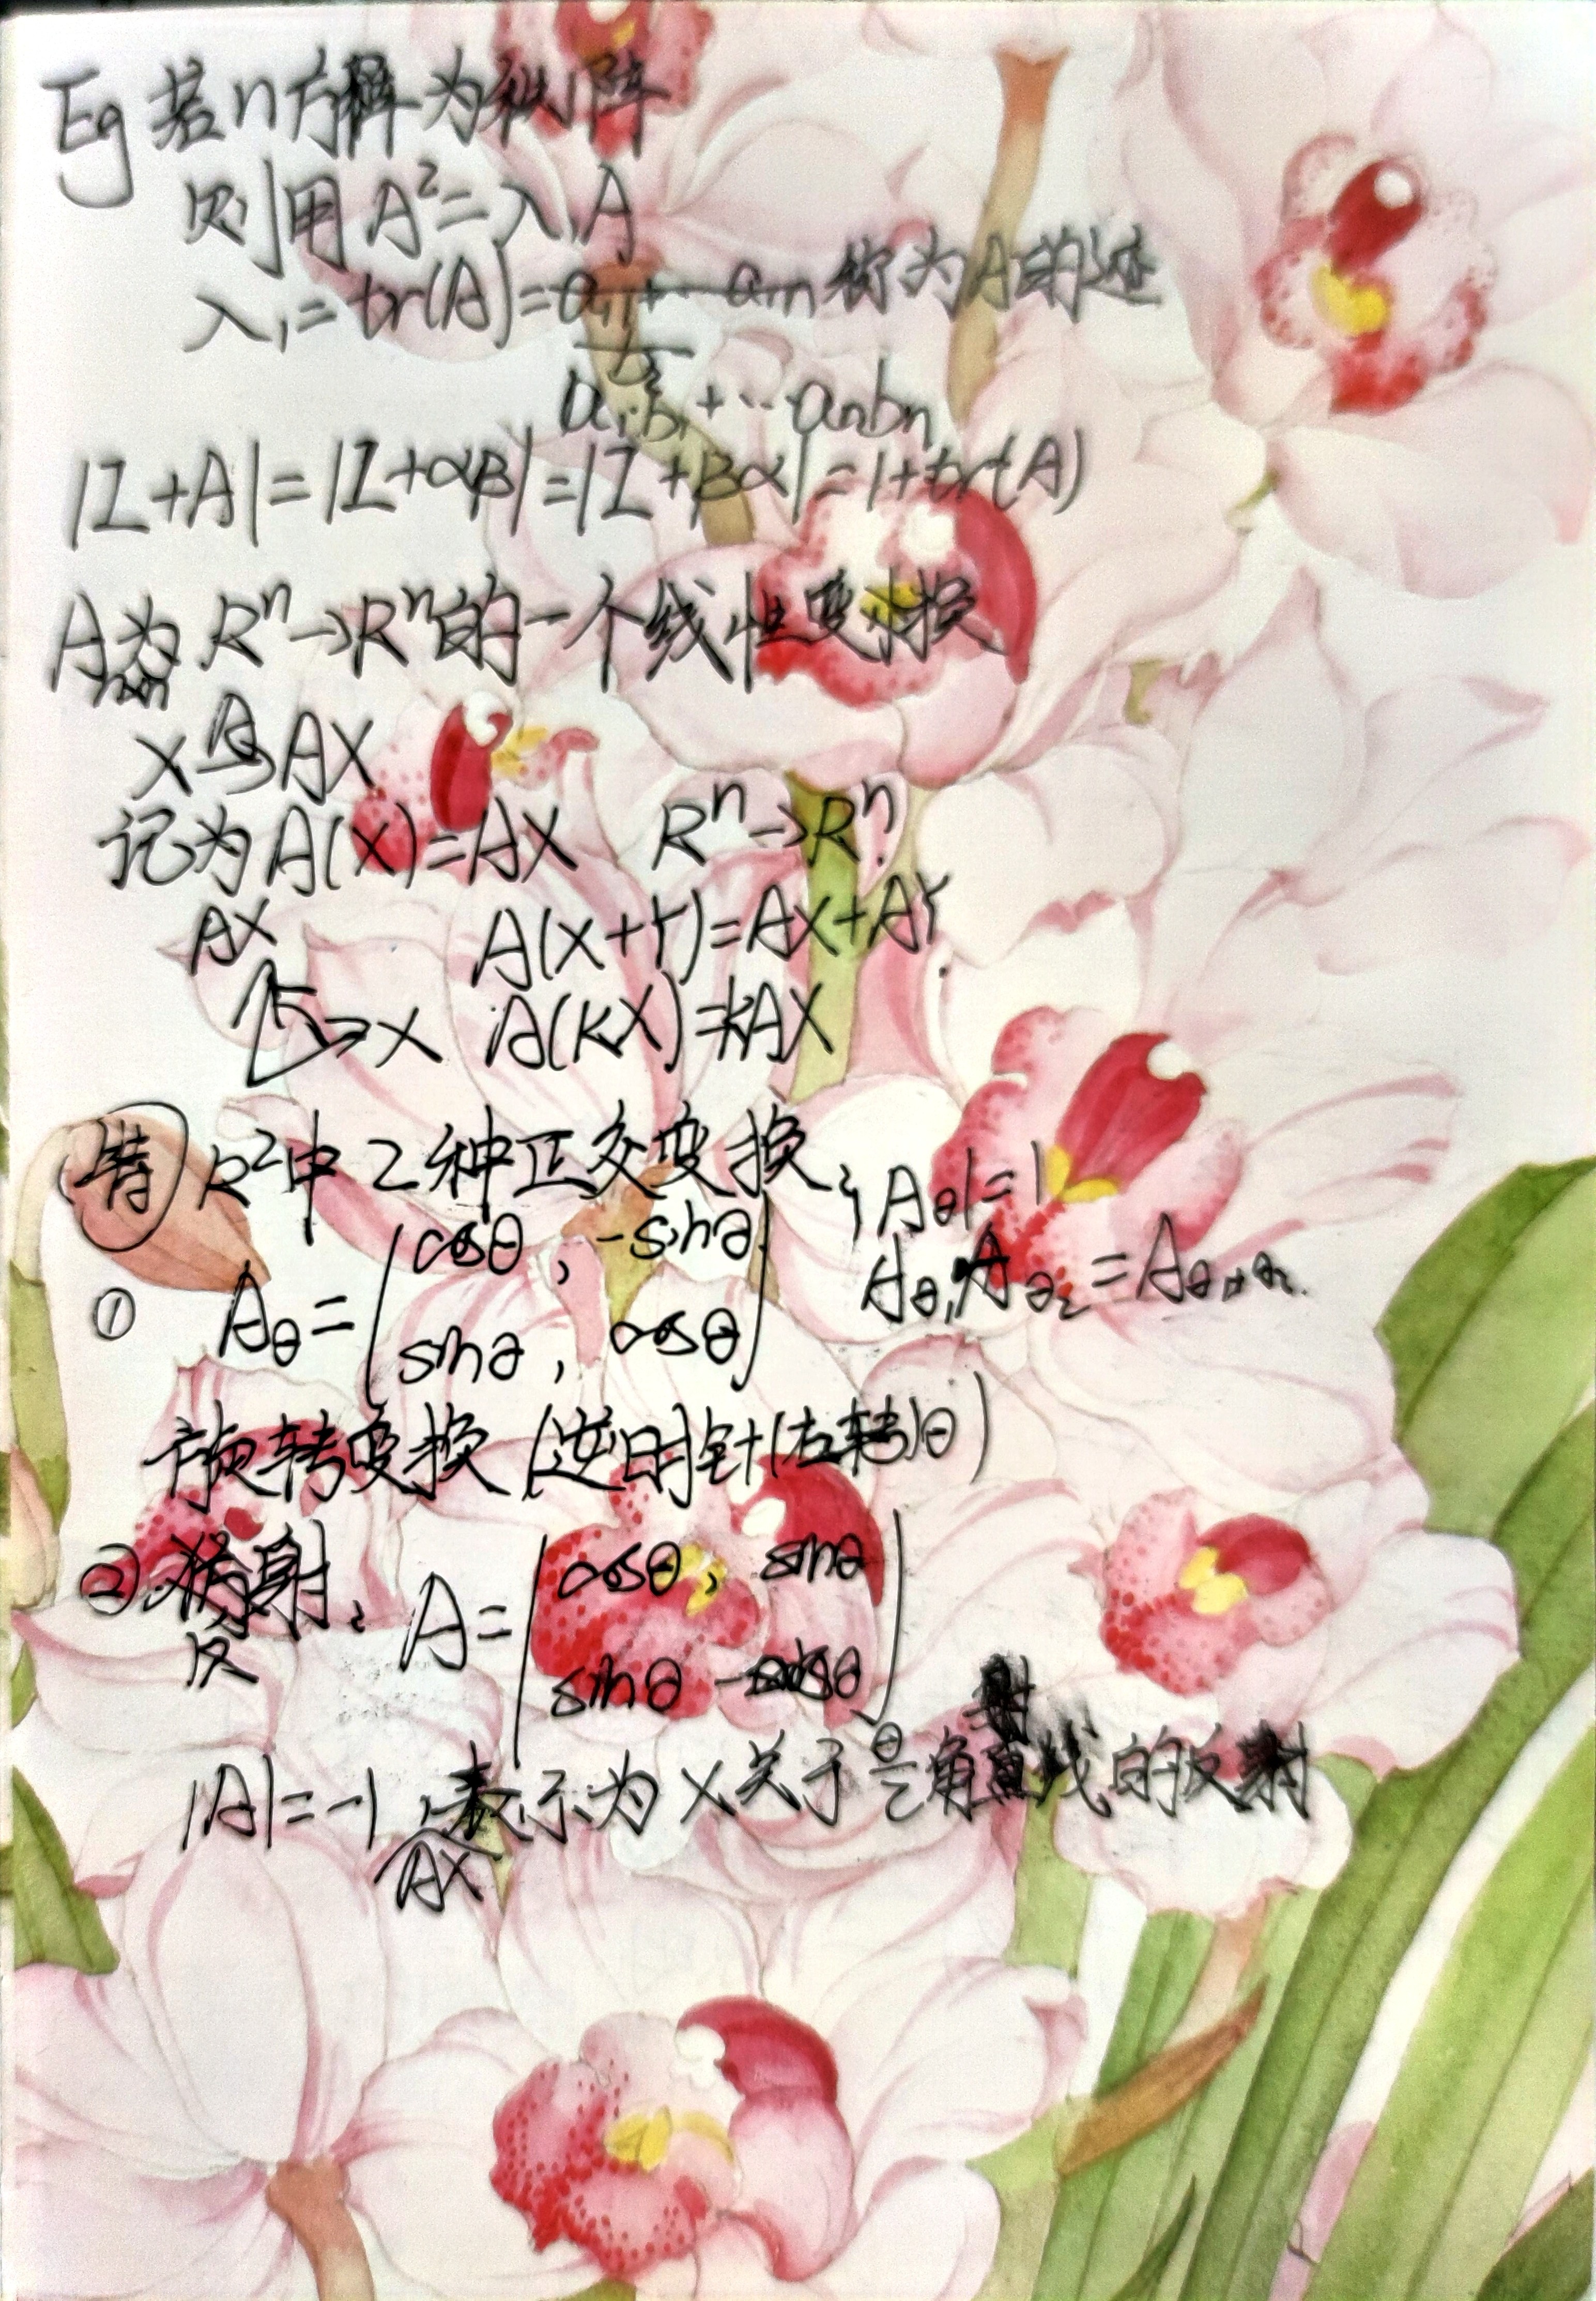 Eg 若n方阵为秩1阵
则用 A²=λ₁A
λ₁=tr(A)=a₁₁+…ann 称为A的迹
a₁b₁+…anbn
|I+A|=|I+αβ|=|I+βα|=1+tr(A)
A为 Rⁿ→Rⁿ的一个线性变换
X ↦ AX
记为A(X)=AX Rⁿ→Rⁿ
AX A(X+Y)=AX+AY
X A(kX)=kAX
特 R²中2种正交变换, |Aθ|=1
Aθ₁Aθ₂=Aθ₁+θ₂
① Aθ=(cosθ, -sinθ
sinθ, cosθ)
旋转变换(逆时针(左转)θ)
② 射: A=(cosθ, sinθ
反
sinθ -cosθ)
射
|A|=-1 表示为X关于θ/2角直线的反射
AX